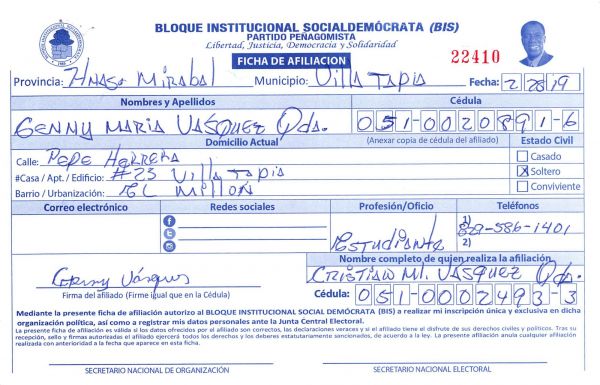 BLOQUE INSTITUCIONAL SOCIALDEMÓCRATA (BIS)
PARTIDO PEÑAGOMISTA
Libertad, Justicia, Democracia y Solidaridad
FICHA DE AFILIACION
22410
Provincia: Hnas Mirabal Municipio: Villa TAPIA Fecha: 2/28/19
Nombres y Apellidos Cédula
GENNY MARIA VASQUEZ Qda. 051-0020891-6
Domicilio Actual (Anexar copia de cédula del afiliado) Estado Civil
Calle: PEPE HERRERA Casado
#Casa / Apt. / Edificio: #23 Villa Tapia X Soltero
Barrio / Urbanización: EL MILLON Conviviente
Correo electrónico Redes sociales Profesión/Oficio Teléfonos
Estudiante 1) 829-586-1401
2)
Nombre completo de quien realiza la afiliación
CRISTIAN Ml. VASQUEZ Qda.
Genny Vásquez
Firma del afiliado (Firme igual que en la Cédula) Cédula: 051-0002493-3
Mediante la presente ficha de afiliación autorizo al BLOQUE INSTITUCIONAL SOCIAL DEMÓCRATA (BIS) a realizar mi inscripción única y exclusiva en dicha
organización política, así como a registrar mis datos personales ante la Junta Central Electoral.
La presente ficha de afiliación es válida si los datos ofrecidos por el afiliado son correctos, las declaraciones veraces y si el afiliado tiene el disfrute de sus derechos civiles y políticos. Tras su
recepción, sello y firmas autorizadas el afiliado ejercerá todos los derechos y los deberes estatutariamente sancionados, de acuerdo a la ley. La presente afiliación anula cualquier afiliación
realizada con anterioridad a la fecha que aparece en esta ficha.
SECRETARIO NACIONAL DE ORGANIZACIÓN SECRETARIO NACIONAL ELECTORAL